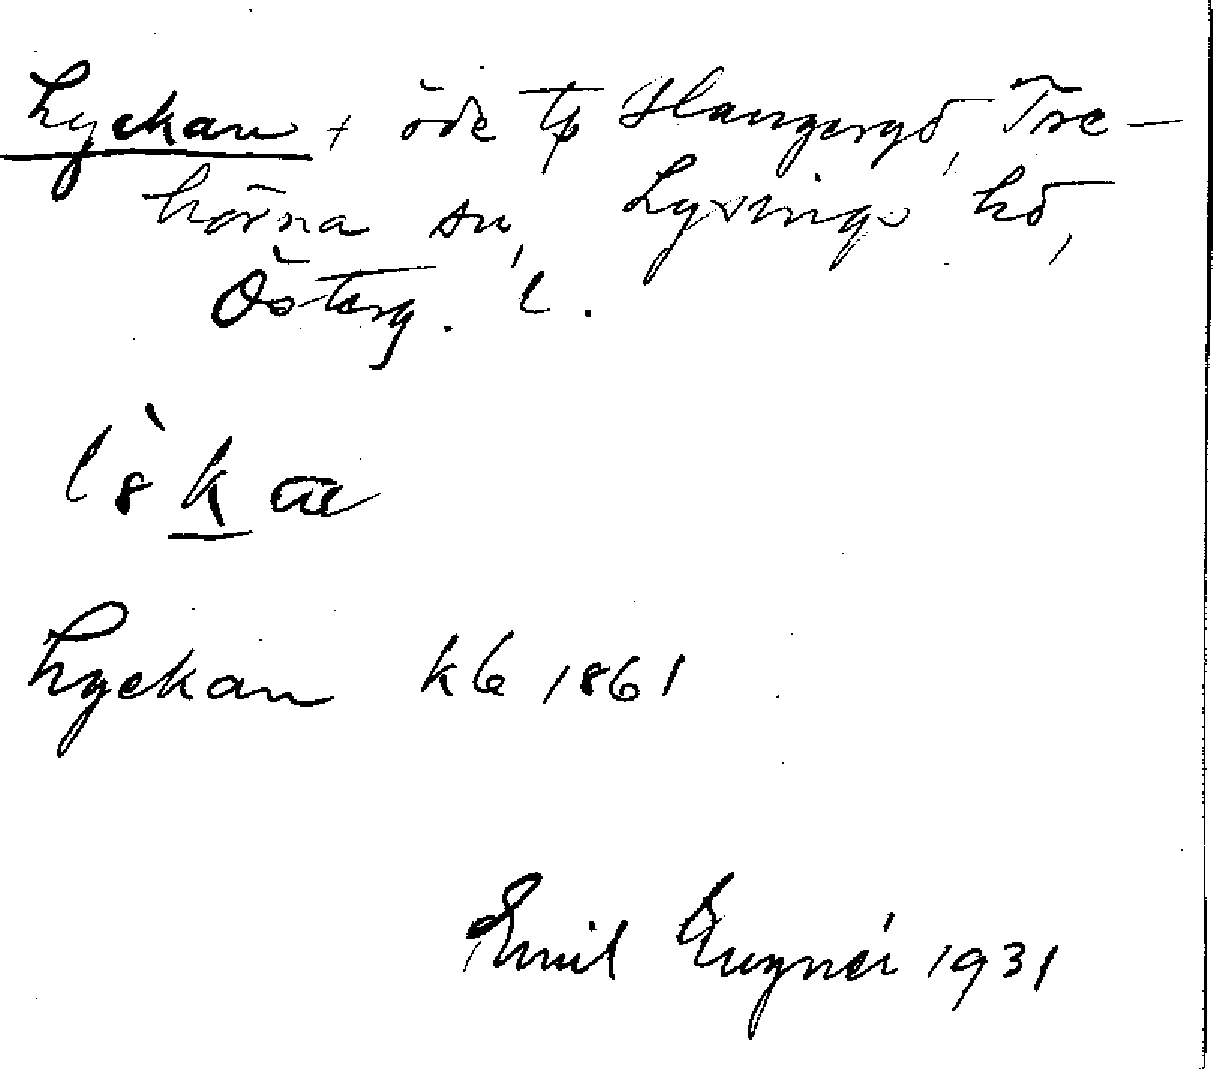 Lyckan + öde tp Haugergd, Tre-
hörna sn, Lysings hd,
Österg. l.
Lyckan kb 1861
Emil Eugnér 1931